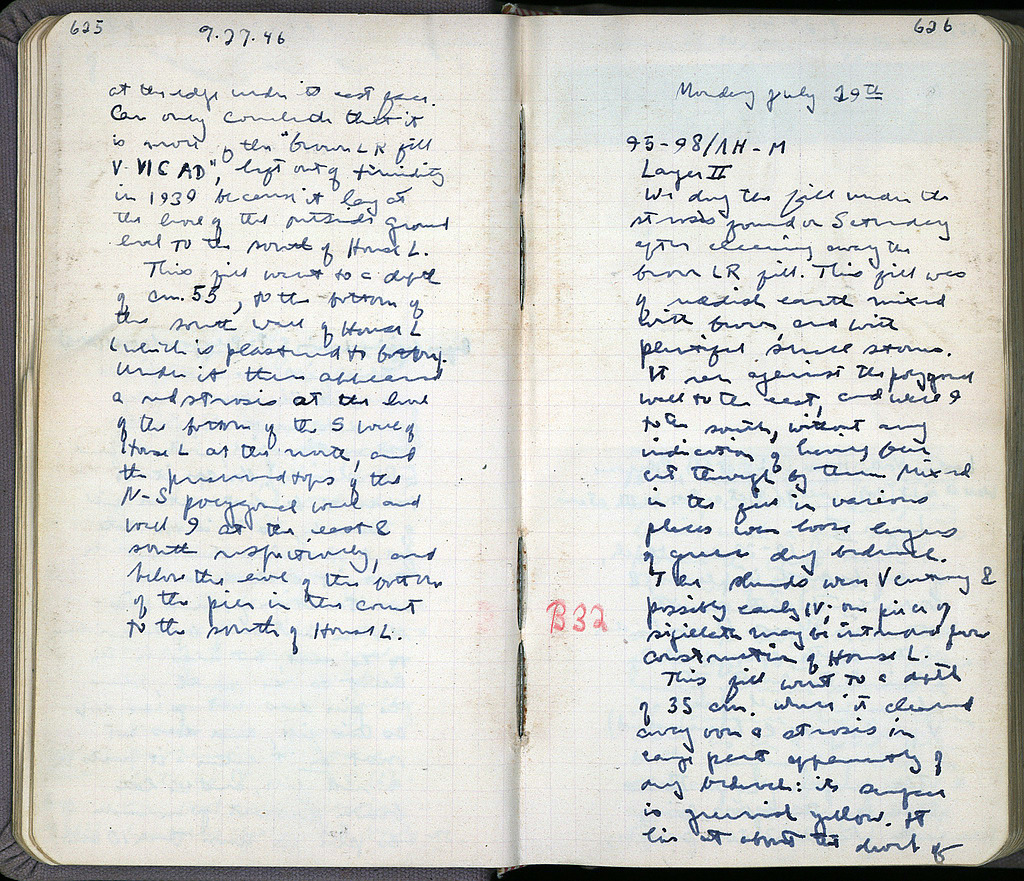 625
7.27.46
at the edge under its east face.
Can only conclude that it
is more of the "brown LR fill
V-VIC AD", left out of timidity
in 1939 because it lay at
the level of the outside ground
level to the south of House L.
This fill went to a depth
of cm. 55, to the bottom of
the south wall of House L
(which is plastered to bottom).
Under it there appeared
a red strosis at the level
of the bottom of the S wall of
House L at the north, and
the preserved tops of the
N-S polygonal wall and
wall 9 at the east &
south respectively, and
below the level of the bottom
of the pier in the court
to the south of House L.
626
Monday July 29th
95-98/ΛH-M
Layer II
We dug the fill under the
strosis found on Saturday
after cleaning away the
brown LR fill. This fill was
of reddish earth mixed
with brown and with
plentiful small stones.
It ran against the polygonal
wall to the east, and wall 9
to the south, without any
indication of having been
cut through by them. Mixed
in the fill in various
places were loose layers
of green dug bedrock.
The sherds were V century &
possibly early IV; one piece of
sigillata may be intrusive from
construction of House L.
This fill went to a depth
of 35 cm. where it cleared
away over a strosis in
large part apparently of
dug bedrock: its surface
is greenish yellow. It
lies at about the level of
B32